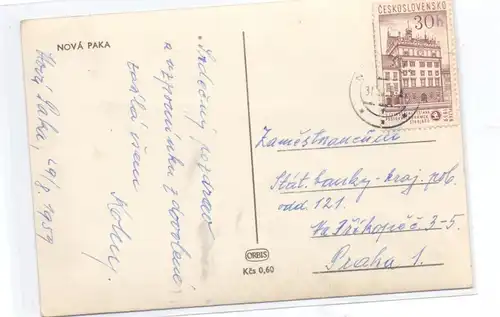 NOVÁ PAKA
Nová Paka, 29/8. 1959
Srdečný pozdrav
a vzpomínku z dovolené
zasílá všem
ČESKOSLOVENSKO
30h
Zaměstnancům
Stát. banky - kraj. pob.
odd 121
Na Příkopě č. 3-5
Praha 1.
ORBIS
Kčs 0,60